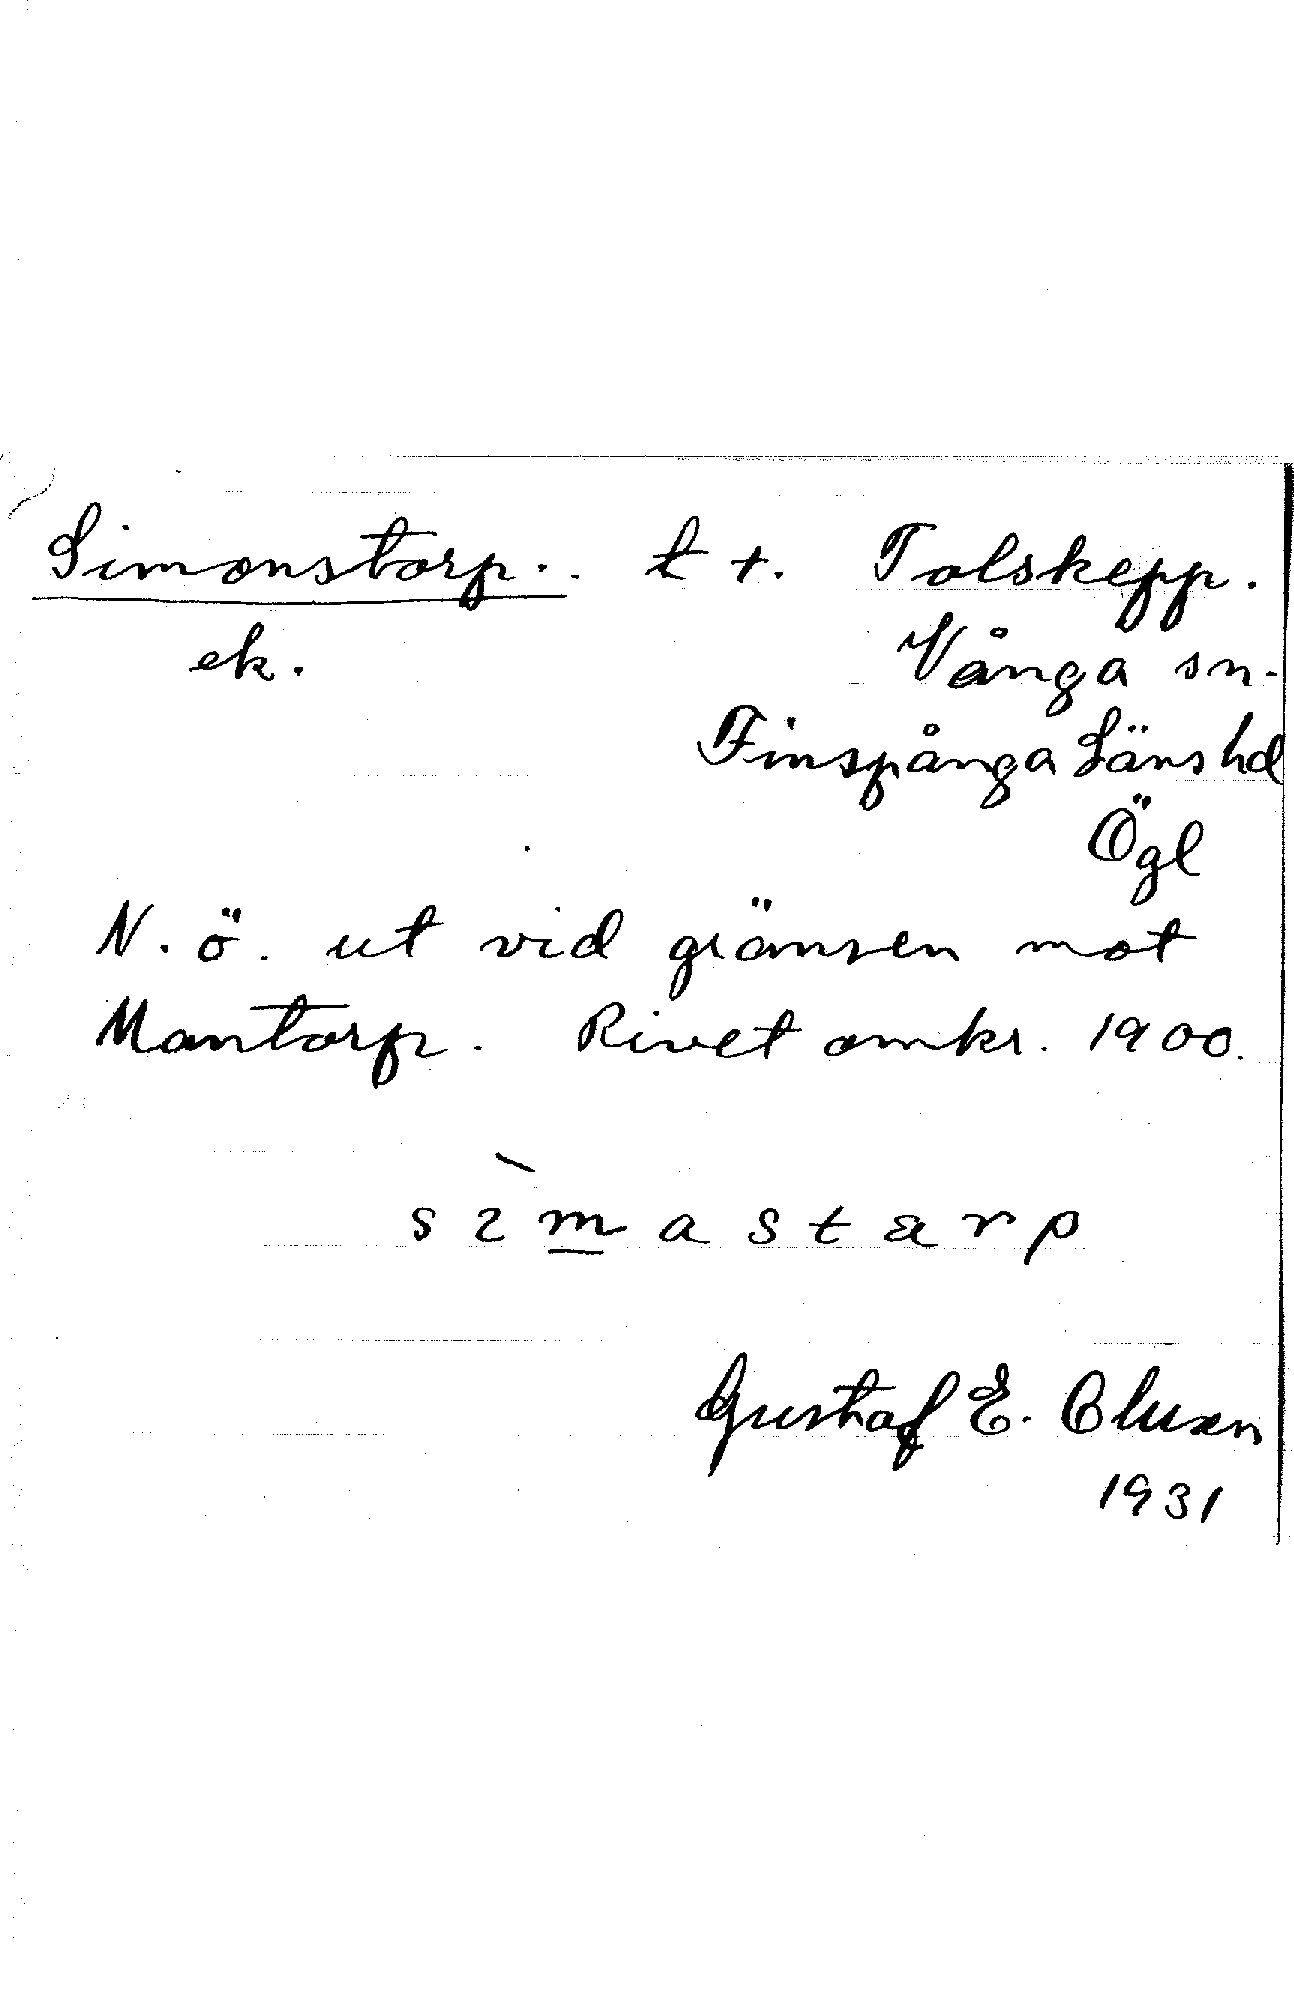 Simonstorp. t +. Tolskepp.
ek. Vånga sn.
Finspånga Läns hd
Ögl
N. ö. ut vid gränsen mot
Mantorp. Rivet omkr. 1900.
sımastarp
Gustaf E.
1931